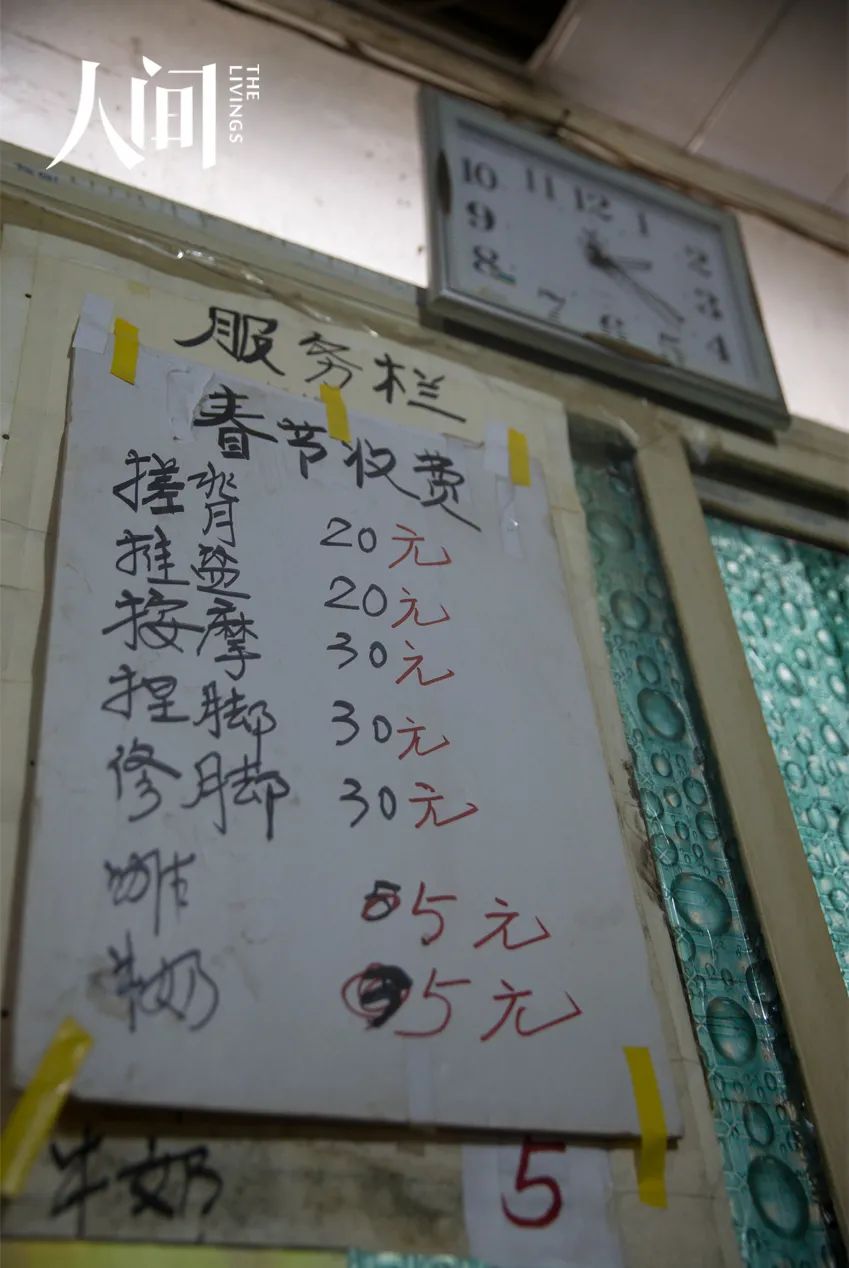 人间
THE LIVINGS
10 11 12 1 2 3 4 5 6 7 8 9
服务栏
春节收费
搓背 20元
推盐 20元
按摩 30元
捏脚 30元
修脚 30元
5元
牛奶 5元
牛奶 5